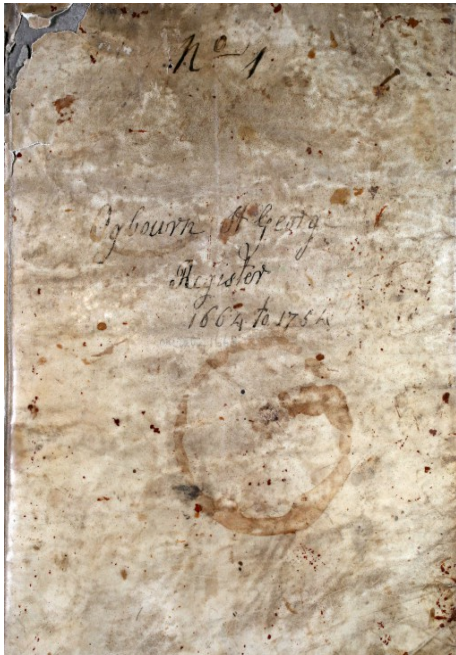 No 1
Ogbourn St Georg
Register
1664 to 1754